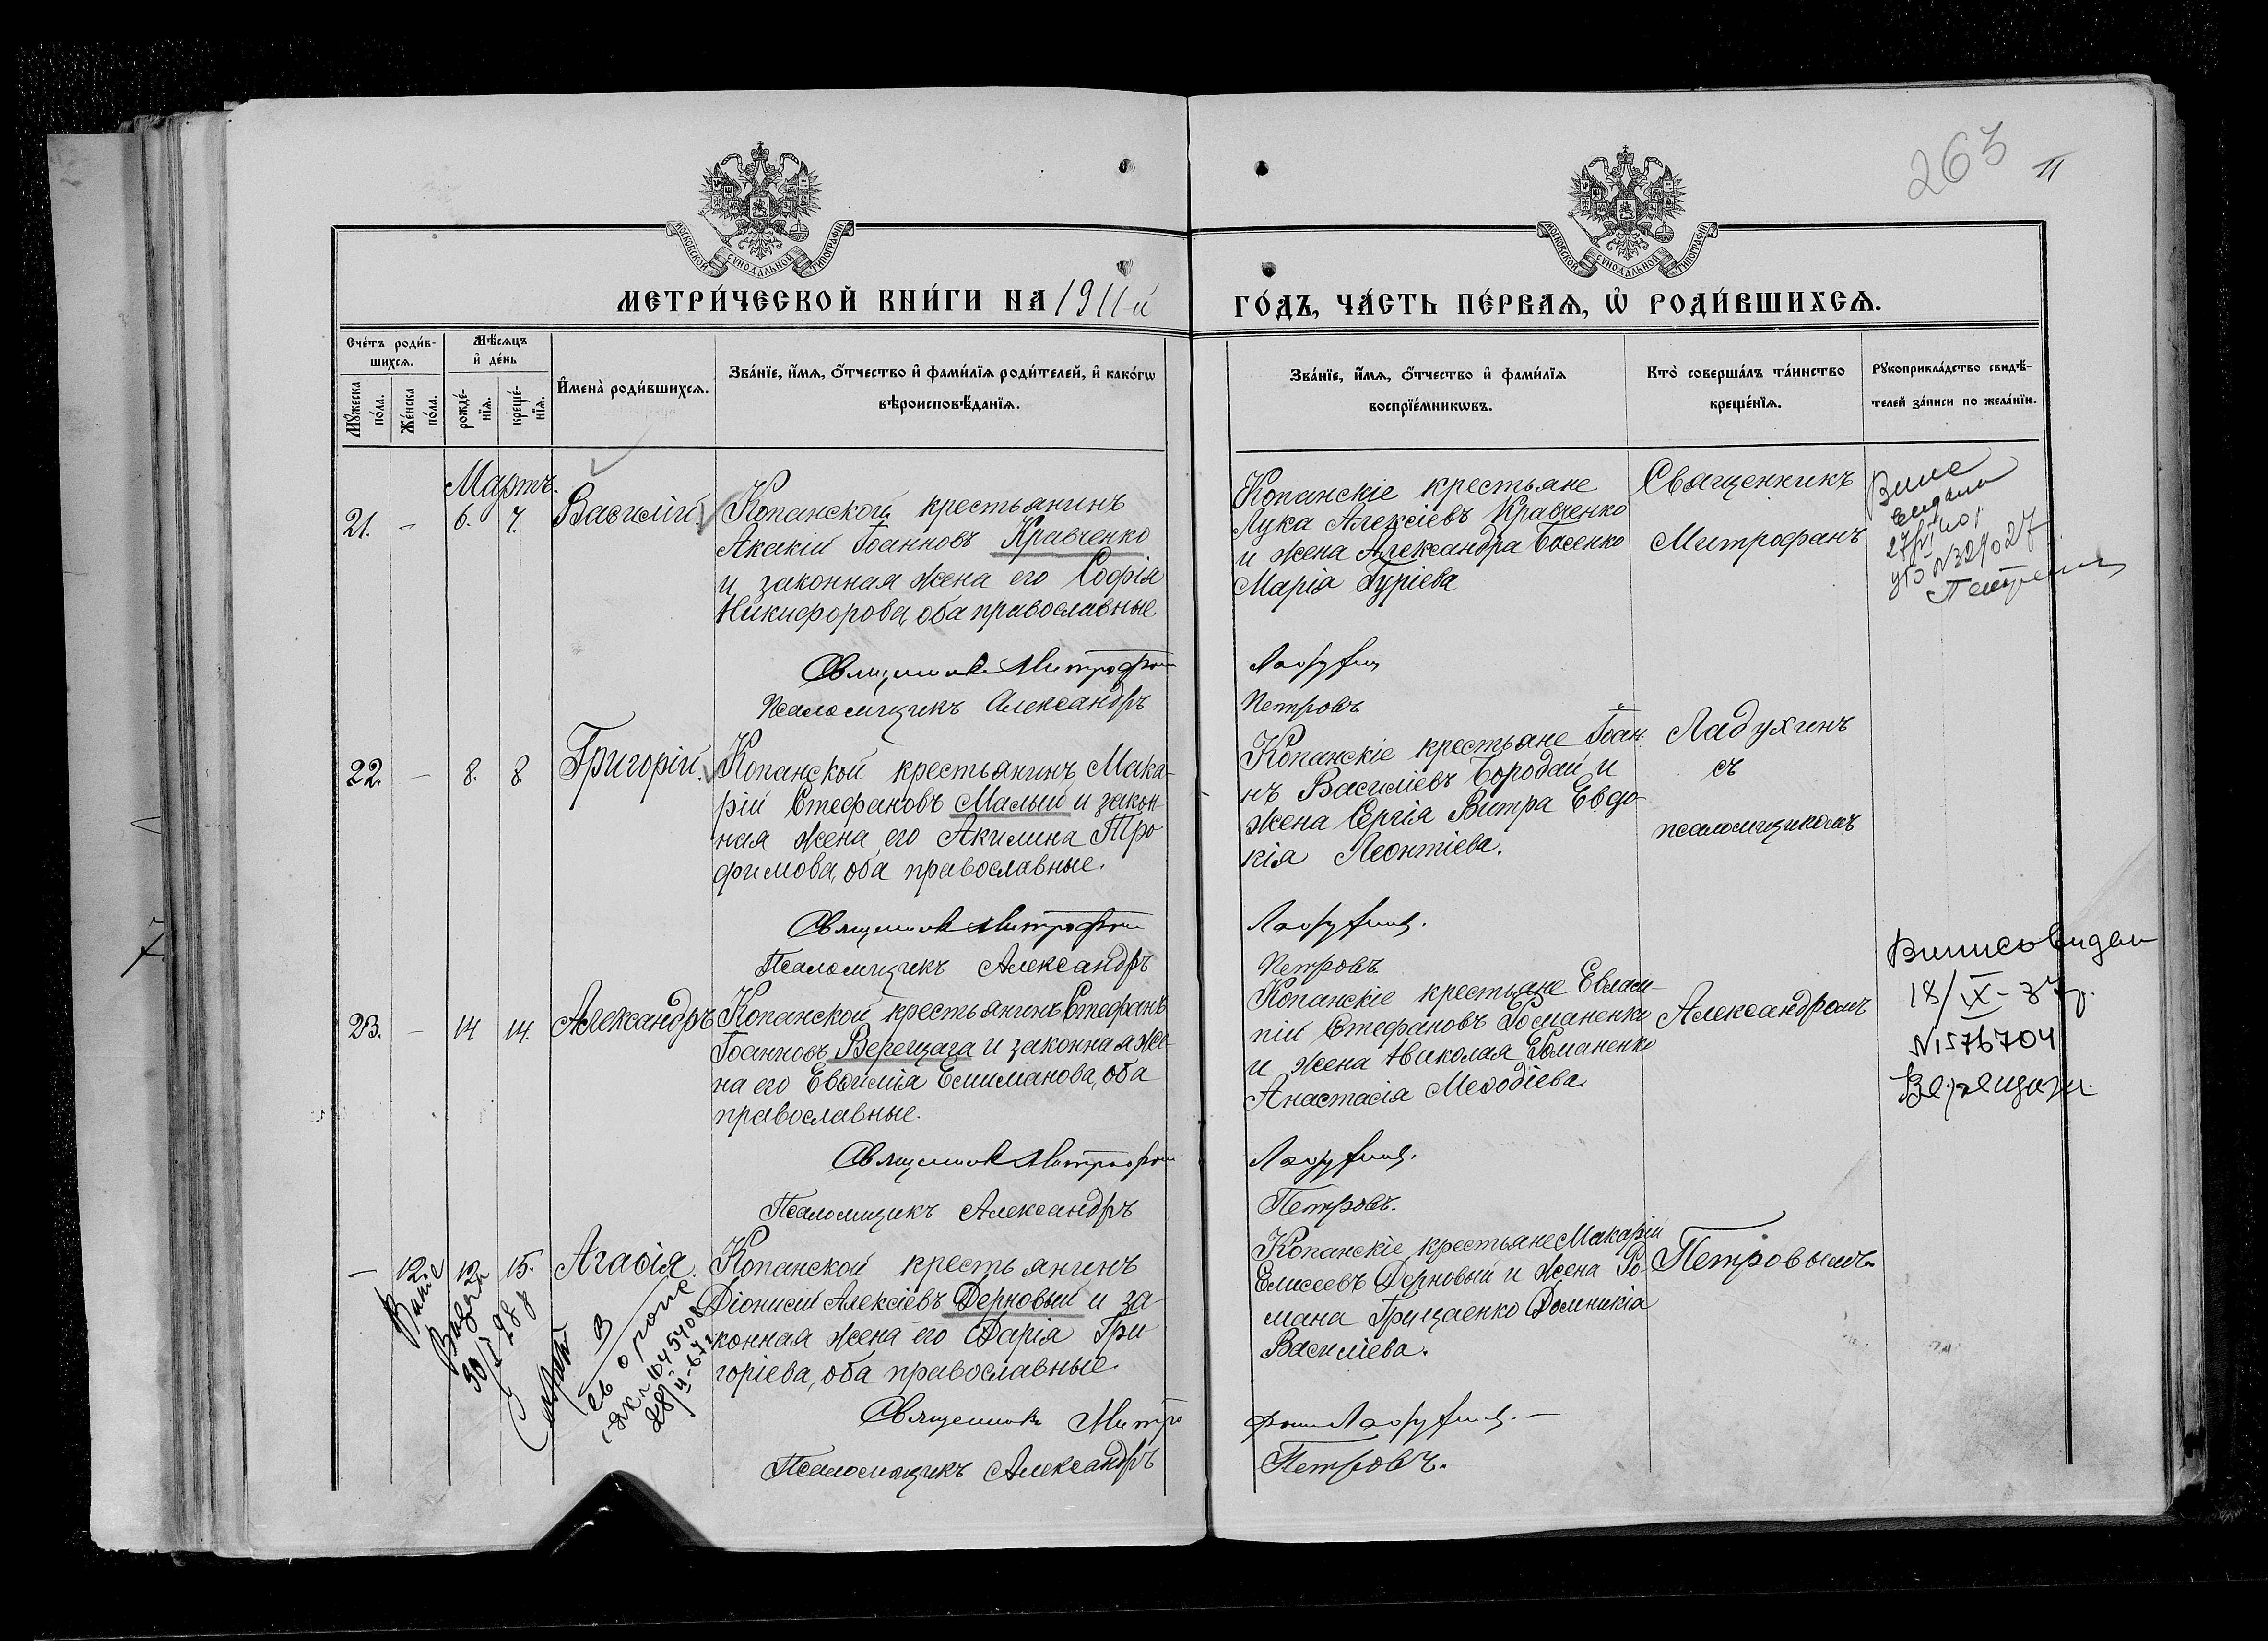 263
11
МОСКОВСКОЙ СѴНОДАЛЬНОЙ ТИПОГРАФІИ
МОСКОВСКОЙ СѴНОДАЛЬНОЙ ТИПОГРАФІИ
МЕТРИ́ЧЕСКОЙ КНИ́ГИ НА 1911 й
ГО́ДЪ, ЧА́СТЬ ПЕ́РВАЯ, Ѡ҆ РОДИ́ВШИХСѦ.
Сче́тъ роди́в-
шихсѧ.
Мꙋ́жеска
по́ла.
Же́нска
по́ла.
Мѣ́сѧцъ
и҆ де́нь
рожде́-
нїѧ.
креще́-
нїѧ.
И҆мена̀ роди́вшихсѧ.
Зва́нїе, и҆́мѧ, ѻ҆́тчество и҆ фами́лїѧ роди́телей, и҆ како́гѡ
вѣроисповѣ́данїѧ.
Зва́нїе, и҆́мѧ, ѻ҆́тчество и҆ фами́лїѧ
воспрїе́мникѡвъ.
Кто̀ соверша́лъ та́инство
креще́нїѧ.
Рꙋкоприкла́дство свидѣ́-
телей за́писи по жела́нїю.
Мартъ.
21. — 6. 7. Василій.
Копанской крестьянинъ
Акакій Іоанновъ Кравченко
и законная жена его Софія
Никифорова, оба православные
Священникъ Митрофан
Псаломщикъ Александръ
Копанскіе крестьяне
Лука Алексіевъ Кравченко
и жена Александра Босенко
Марія Гуріева
Ладухин
Петровъ
Священникъ
Митрофанъ
видана
22. — 8. 8 Григорій.
Копанской крестьянинъ Мака-
рій Стефановъ Малый и закон-
ная жена его Акилина Тро
фимова, оба православные.
Священник Митрофан
Псаломщикъ Александръ
Копанскіе крестьяне Іоан
нъ Василіевъ Бородай и
жена Сергія Витра Евдо-
кія Леонтіева.
Ладухин.
Петровъ
Ладухинъ
съ
псаломщикомъ
23. — 14 14. Александръ
Копанской крестьянинъ Стефанъ
Іоанновъ Верещага и законная же-
на его Евѳимія Емиліанова, оба
православные.
Священник Митрофан
Псаломщикъ Александръ
Копанскіе крестьяне Евлам-
пій Стефановъ Романенко
и жена Николая Романенко
Анастасія Меѳодіева.
Ладухин.
Петровъ.
Александромъ
18/IX-37р.
№1576704
Верещаги.
— 12 12 15. Агаѳія.
Копанской крестьянинъ
Діонисій Алексіевъ Дерновый и за-
конная жена его Дарія Гри
горіева, оба православные.
Священникъ Митро
Псаломщикъ Александръ
Копанскіе крестьяне Макарій
Елисеевъ Дерновый и жена Ро-
мана Грицаенко Домникія
Василіева.
фан Ладухин. —
Петровъ.
Петровымъ